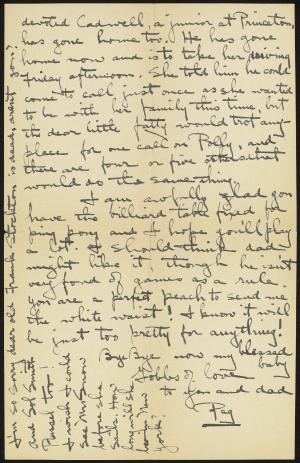 devoted Cadwell, a junior, at Princeton,
has gone home too. He has gone
home now and is to take her driving
Friday afternoon. She told him he could
come to call just once as she wanted
to be with her family this time, but
its dear little fatty would trot any
place for one call on Polly, and
there are four or five others that
would do the same thing.
I am awfully glad you
have the billiard table fixed for
ping pong and I hope you'll play
a lot. I should think dad
might like it though he isn't
very fond of games as a rule.
You are a perfect peach to send me
the white waist! I know it will
be just too pretty for anything!
Bye Bye now my blessed
baby
Gobbs of love
to you and dad
Peg
I'm so sorry dear old Frank Stockton is dead, aren't you?
And Sol Smith
Russel too!
I wish I could
see Mrs Snow
before she
sails. How
long will she
be in New
York?